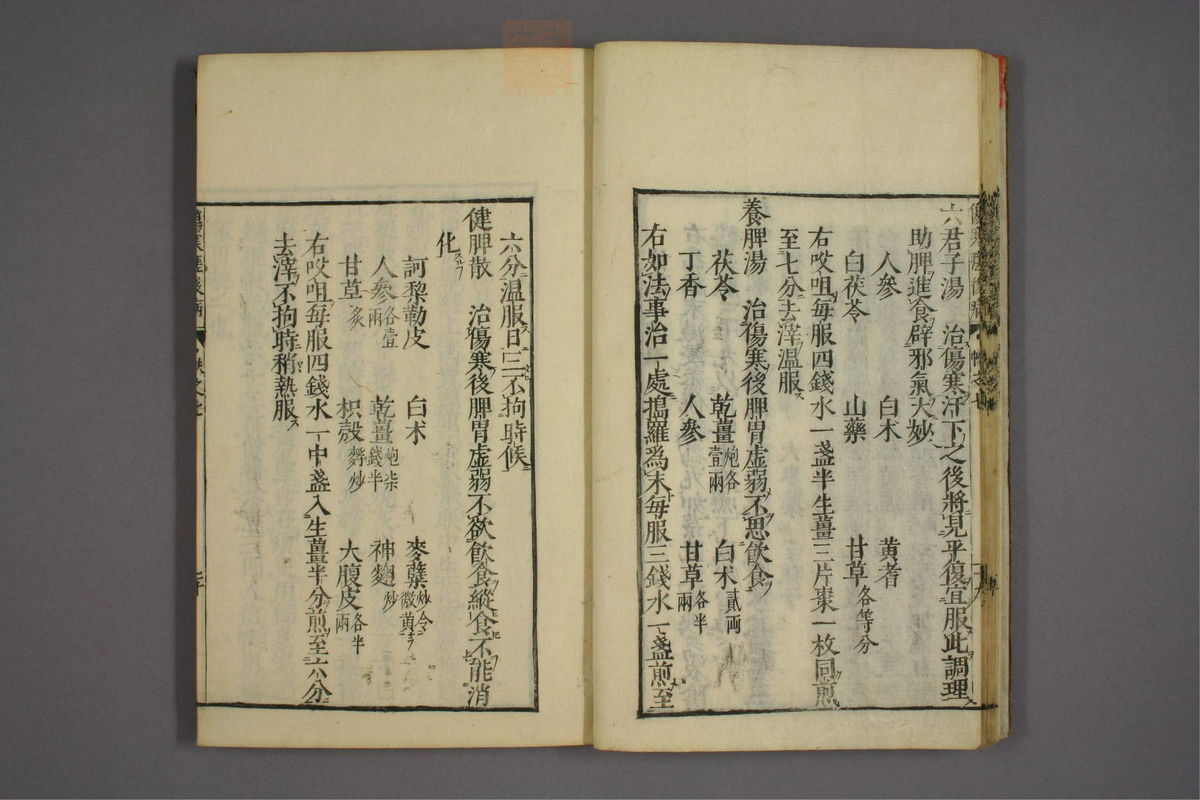 六君子湯　治傷寒汗下之後將見平復宜服此調理
助脾進食辟邪氣大妙
人參　白朮　黃耆
白茯苓　山藥　甘草各等分
右㕮咀每服四錢水一盞半生薑三片棗一枚同煎
至七分去滓溫服
養脾湯　治傷寒後脾胃虛弱不思飲食
茯苓　乾薑炮各壹兩　白朮貳両
丁香　人參　甘草各半兩
右如法事治一處搗羅為末每服三錢水一盞煎至
六分溫服日三不拘時候
健脾散　治傷寒後脾胃虛弱不欲飲食縱食不能消
化
訶黎勒皮　白朮　麥蘗炒令微黃
人參各壹兩　乾薑炮柒錢半　神麴炒
甘草炙　枳殼麩炒　大腹皮各半兩
右㕮咀每服四錢水一中盞入生薑半分煎至六分
去滓不拘時稍熱服